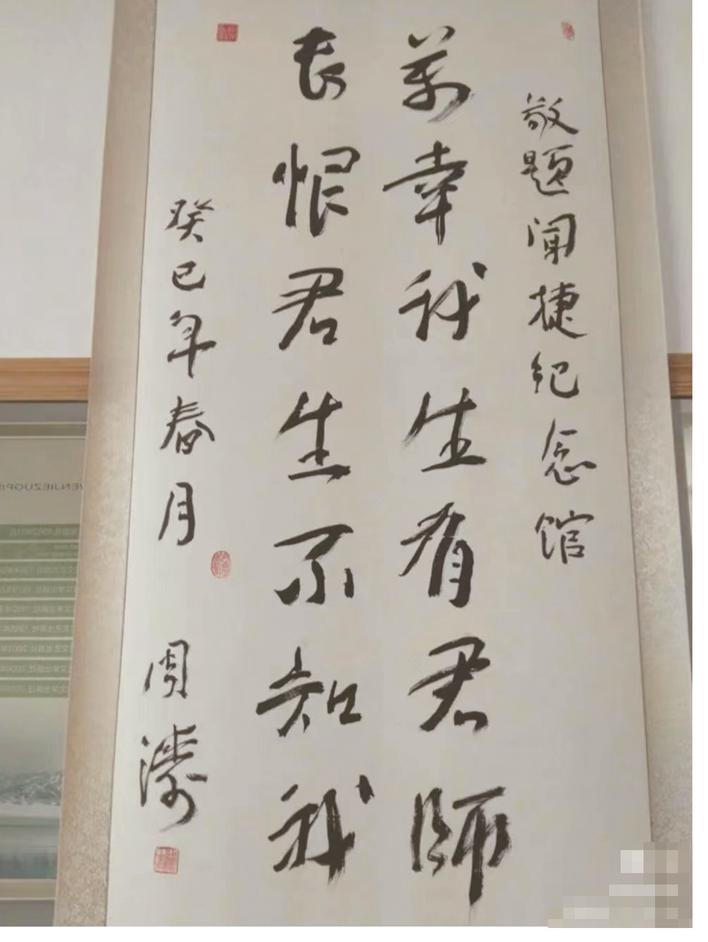 敬题闻捷纪念馆
万幸我生有君师
长恨君生不知我
癸巳年春月
周涛